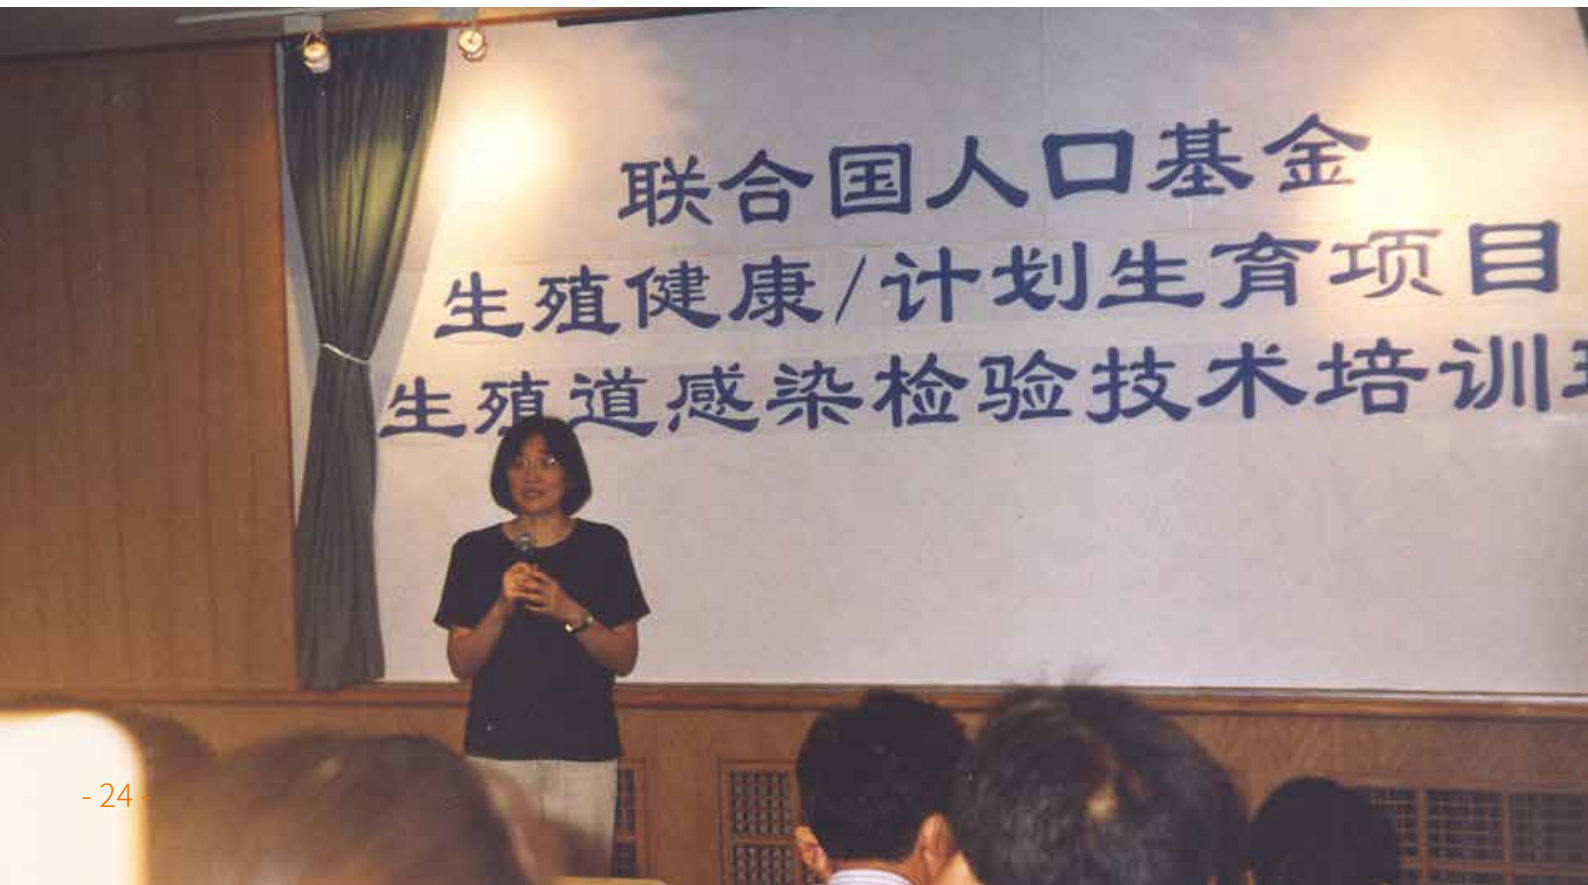 联合国人口基金
生殖健康/计划生育项目
生殖道感染检验技术培训
- 24 -